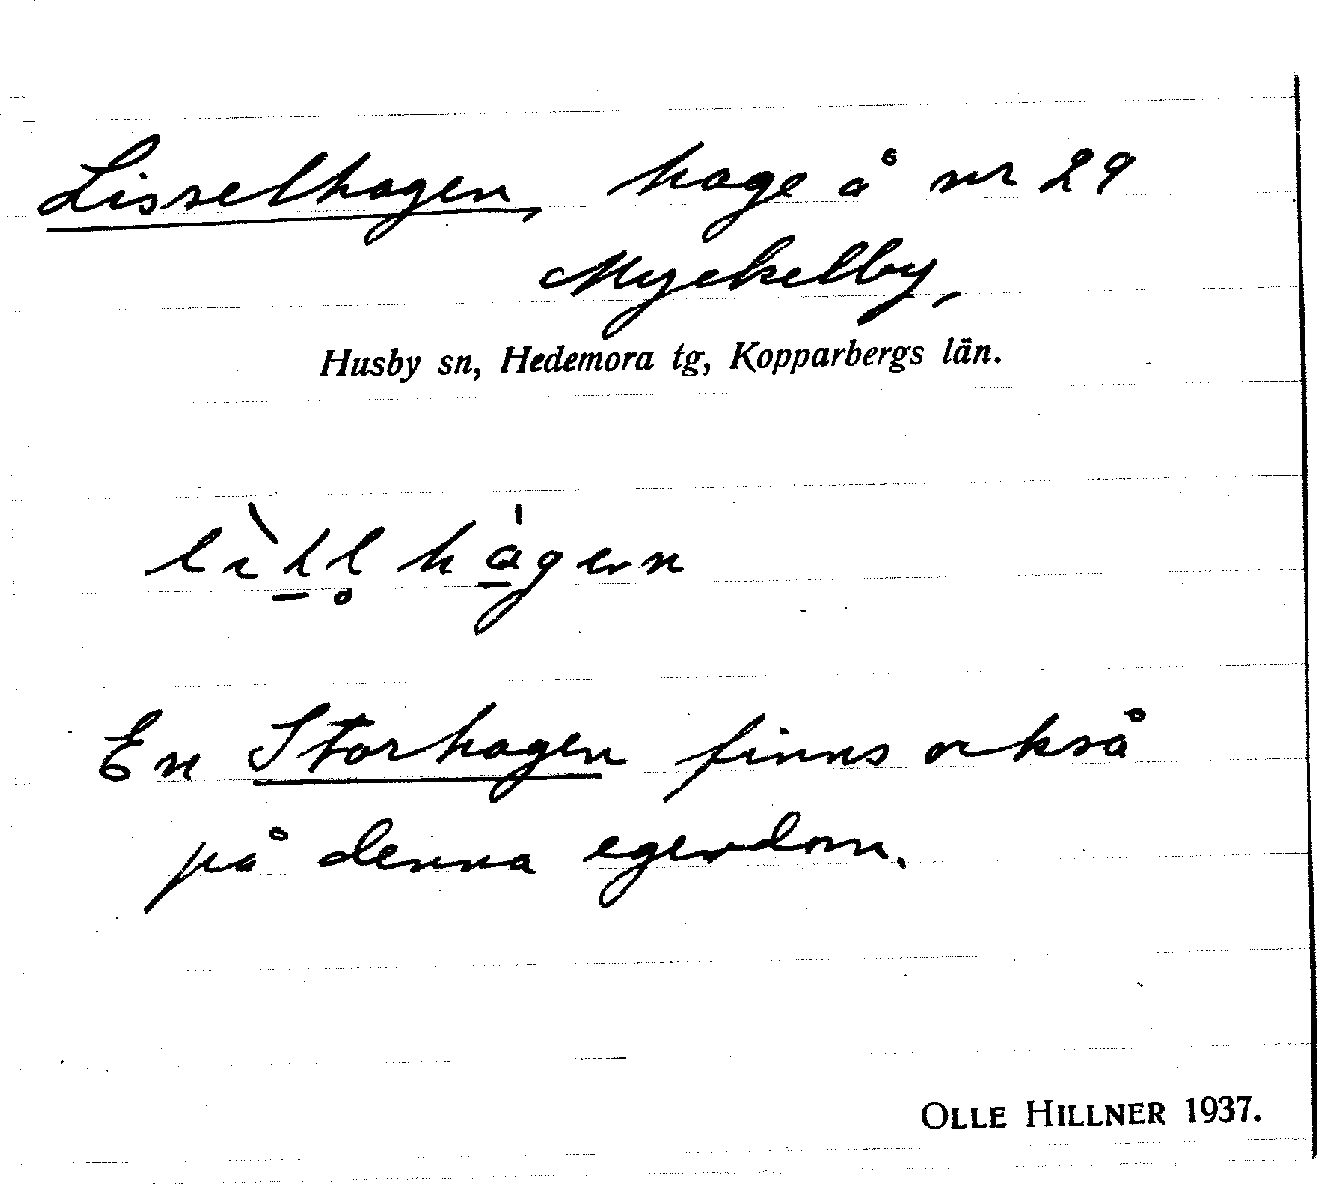 Lisselhagen, hage å nr 29
Myckelby,
Husby sn, Hedemora tg, Kopparbergs län.
En Storhagen finns också
på denna egendom.
OLLE HILLNER 1937.